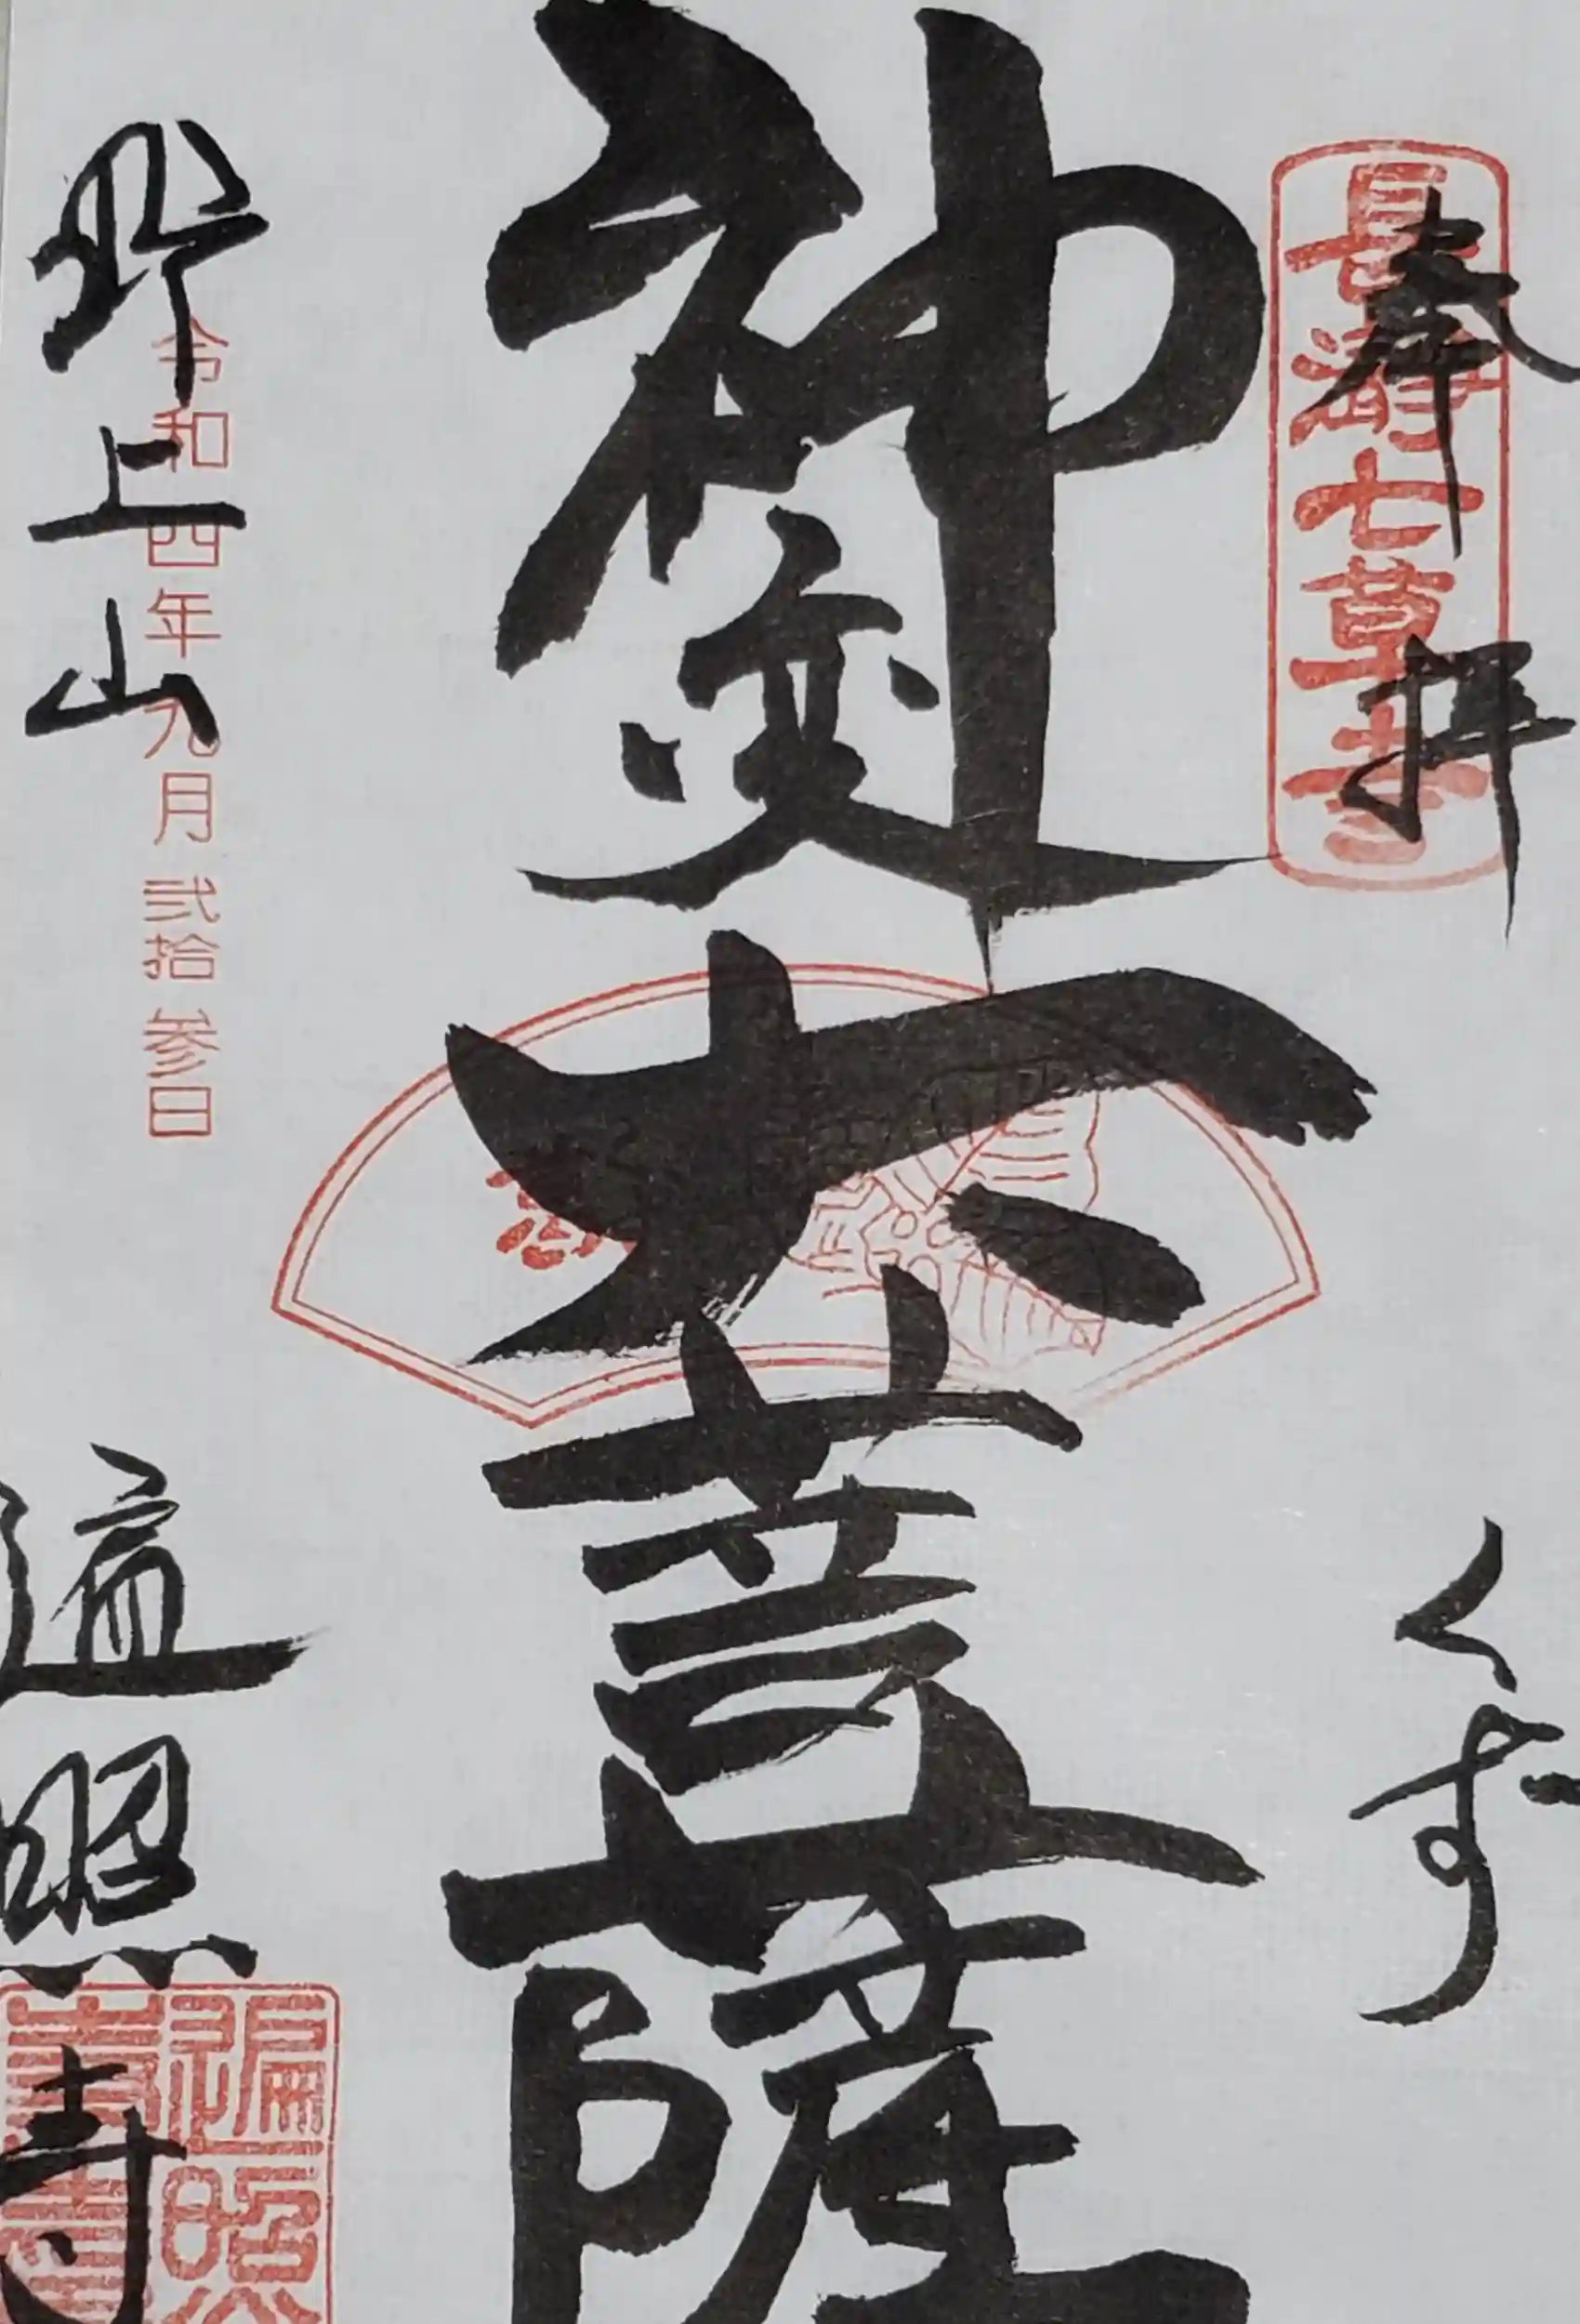 奉拝
長瀞七草寺
くず
神変大菩薩
野上山
遍照寺
令和四年九月弐拾参日
遍照寺